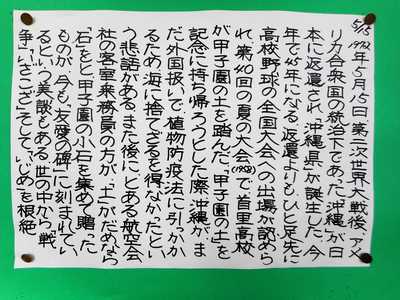 5/15 1972年5月15日、第二次世界大戦後、アメ
リカ合衆国の統治下であった「沖縄」が日
本に返還され「沖縄県」が誕生した。今
年で45年になる。返還よりもひと足先に
高校野球の全国大会への出場が認めら
れ、第40回の夏の大会(1958)で、首里高校
が甲子園の土を踏んだ。「甲子園の土」を
記念に持ち帰ろうとした際、沖縄がま
だ外国扱いで、植物防疫法に引っかか
るため海に捨てざるを得なかったとい
う悲話がある。また後に、とある航空会
社の客室乗務員の方が、「土」がだめなら
「石」をと甲子園の小石を集めて贈った
ものが、今も、「友愛の碑」に刻まれてい
るという美談もある。世の中から、「戦
争」「いさかい」そして、「いじめ」を根絶